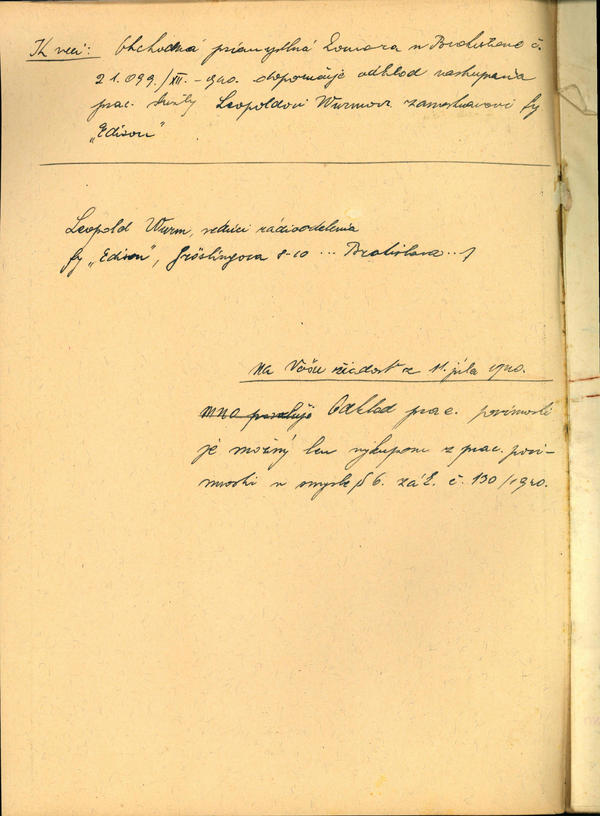 K veci: Obchodná priemyselná komora v Bratislave č.
21.099/XII.-1940. doporučuje odklad nastúpenia
prac. služby Leopoldovi Wurmovi zamestnancovi fy
„Edison"
Leopold Wurm, vedúci rádiooddelenia
fy „Edison", Gröslingova 8-10 ... Bratislava ...
Na Vašu žiadosť z 11. júla 1940.
MNO povoľuje Odklad prac. povinnosti
je možný len výkupom z prac. povin-
nosti v smysle § 6. zák. č. 130/1940.